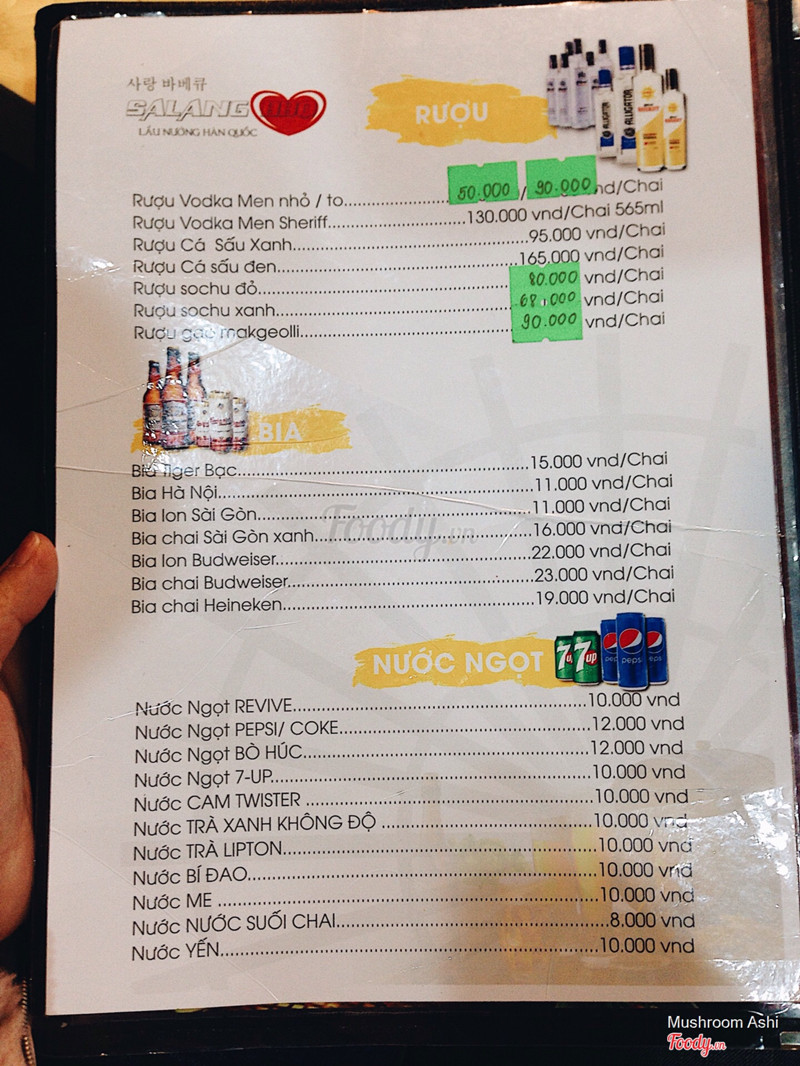 사랑 바베큐
SALANG BBQ
LẨU NƯỚNG HÀN QUỐC
RƯỢU
ALLIGATOR
ALLIGATOR
Rượu Vodka Men nhỏ / to.....................50.000 / 90.000 vnd/Chai
Rượu Vodka Men Sheriff.........................130.000 vnd/Chai 565ml
Rượu Cá Sấu Xanh...........................................95.000 vnd/Chai
Rượu Cá sấu đen............................................165.000 vnd/Chai
Rượu sochu đỏ..............................................80.000 vnd/Chai
Rượu sochu xanh...........................................68.000 vnd/Chai
Rượu gạo makgeolli......................................90.000 vnd/Chai
BIA
Bia Tiger Bạc.....................................................15.000 vnd/Chai
Bia Hà Nội.........................................................11.000 vnd/Chai
Bia lon Sài Gòn..................................................11.000 vnd/Chai
Bia chai Sài Gòn xanh........................................16.000 vnd/Chai
Bia lon Budweiser..............................................22.000 vnd/Chai
Bia chai Budweiser.............................................23.000 vnd/Chai
Bia chai Heineken..............................................19.000 vnd/Chai
Foody.vn
NƯỚC NGỌT
7up
pepsi
Nước Ngọt REVIVE......................................................10.000 vnd
Nước Ngọt PEPSI/ COKE..............................................12.000 vnd
Nước Ngọt BÒ HÚC....................................................12.000 vnd
Nước Ngọt 7-UP.........................................................10.000 vnd
Nước CAM TWISTER ....................................................10.000 vnd
Nước TRÀ XANH KHÔNG ĐỘ .......................................10.000 vnd
Nước TRÀ LIPTON.......................................................10.000 vnd
Nước BÍ ĐAO..............................................................10.000 vnd
Nước ME ...................................................................10.000 vnd
Nước NƯỚC SUỐI CHAI.................................................8.000 vnd
Nước YẾN...................................................................10.000 vnd
Mushroom Ashi
Foody.vn